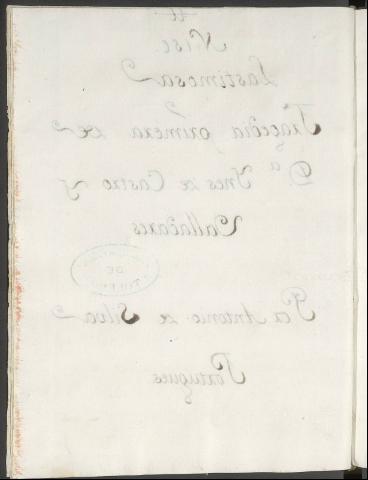 Nise
Lastimosa
Tragedia primera de
D.ª Ynes de Castro y
Valladares
Por Antonio de Silva
Portugues
DE